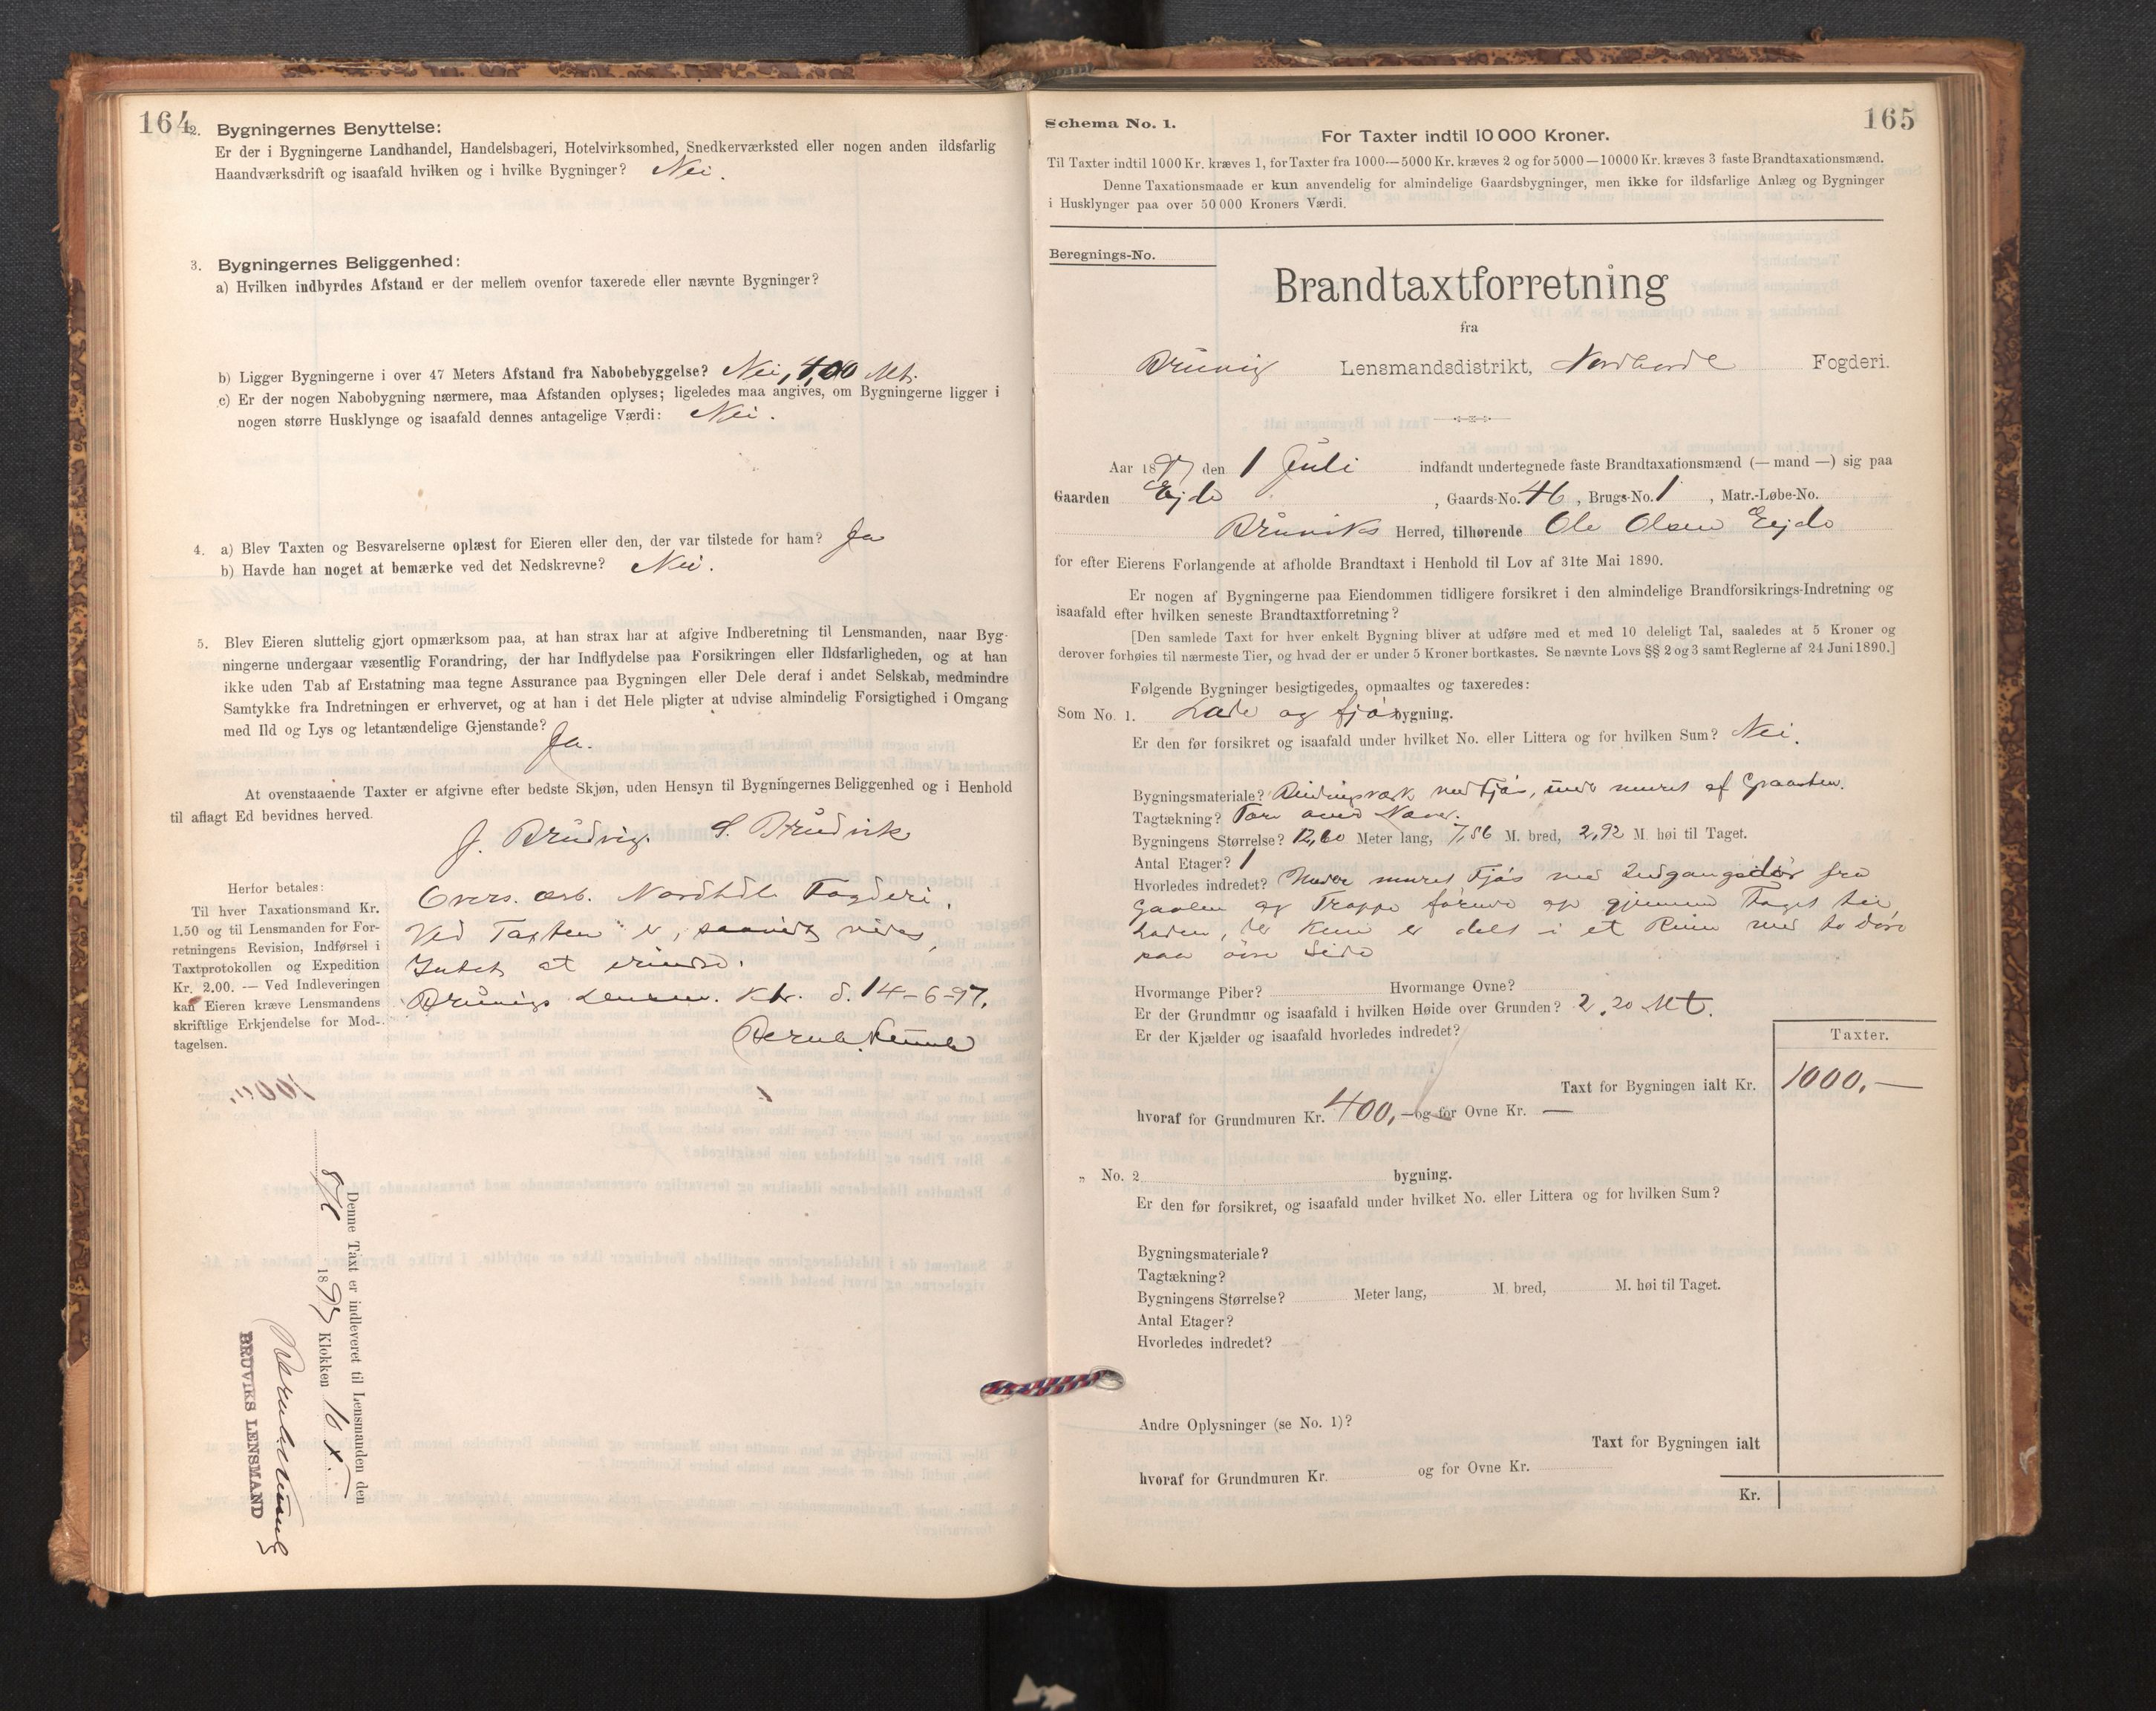 164
2. Bygningernes Benyttelse:
Er der i Bygningerne Landhandel, Handelsbageri, Hotelvirksomhed, Snedkerværksted eller nogen anden ildsfarlig
Haandværksdrift og isaafald hvilken og i hvilke Bygninger? Nei.
3. Bygningernes Beliggenhed:
a) Hvilken indbyrdes Afstand er der mellem ovenfor taxerede eller nævnte Bygninger?
b) Ligger Bygningerne i over 47 Meters Afstand fra Nabobebyggelse? Nei, 400 Mt.
c) Er der nogen Nabobygning nærmere, maa Afstanden oplyses; ligeledes maa angives, om Bygningerne ligger i
nogen større Husklynge og isaafald dennes antagelige Værdi: Nei.
4. a) Blev Taxten og Besvarelserne oplæst for Eieren eller den, der var tilstede for ham? Ja
b) Havde han noget at bemærke ved det Nedskrevne? Nei.
5. Blev Eieren sluttelig gjort opmærksom paa, at han strax har at afgive Indberetning til Lensmanden, naar Byg-
ningerne undergaar væsentlig Forandring, der har Indflydelse paa Forsikringen eller Ildsfarligheden, og at han
ikke uden Tab af Erstatning maa tegne Assurance paa Bygningen eller Dele deraf i andet Selskab, medmindre
Samtykke fra Indretningen er erhvervet, og at han i det Hele pligter at udvise almindelig Forsigtighed i Omgang
med Ild og Lys og letantændelige Gjenstande? Ja.
At ovenstaaende Taxter er afgivne efter bedste Skjøn, uden Hensyn til Bygningernes Beliggenhed og i Henhold
til aflagt Ed bevidnes herved.
J. Brudvig. S. Brudvik
Herfor betales:
Til hver Taxationsmand Kr.
1.50 og til Lensmanden for For-
retningens Revision, Indførsel i
Taxtprotokollen og Expedition
Kr. 2.00. — Ved Indleveringen
kan Eieren kræve Lensmandens
skriftlige Erkjendelse for Mod-
tagelsen.
Overs. ærb. Nordhdl. Fogderi.
Ved Taxten er, saavidt vides,
Intet at erindre.
Bruvigs Lensm. Ktr. d. 14-6-97.
Denne Taxt er indleveret til Lensmanden den
1897 Klokken 10
BRUVIKS LENSMAND
165
Schema No. 1.
For Taxter indtil 10 000 Kroner.
Til Taxter indtil 1000 Kr. kræves 1, for Taxter fra 1000—5000 Kr. kræves 2 og for 5000—10000 Kr. kræves 3 faste Brandtaxationsmænd.
Denne Taxationsmaade er kun anvendelig for almindelige Gaardsbygninger, men ikke for ildsfarlige Anlæg og Bygninger
i Husklynger paa over 50 000 Kroners Værdi.
Beregnings-No.
Brandtaxtforretning
fra
Bruvig Lensmandsdistrikt, Nordhordl Fogderi.
Aar 1897 den 1 Juli indfandt undertegnede faste Brandtaxationsmænd (— mand —) sig paa
Gaarden Eyde, Gaards-No. 46, Brugs-No. 1, Matr.-Løbe-No.
Bruviks Herred, tilhørende Ole Olsen Eyde
for efter Eierens Forlangende at afholde Brandtaxt i Henhold til Lov af 31te Mai 1890.
Er nogen af Bygningerne paa Eiendommen tidligere forsikret i den almindelige Brandforsikrings-Indretning og
isaafald efter hvilken seneste Brandtaxtforretning?
[Den samlede Taxt for hver enkelt Bygning bliver at udføre med et med 10 deleligt Tal, saaledes at 5 Kroner og
derover forhøies til nærmeste Tier, og hvad der er under 5 Kroner bortkastes. Se nævnte Lovs §§ 2 og 3 samt Reglerne af 24 Juni 1890.]
Følgende Bygninger besigtigedes, opmaaltes og taxeredes:
Som No. 1. Lade og fjøs bygning.
Er den før forsikret og isaafald under hvilket No. eller Littera og for hvilken Sum? Nei.
Bygningsmateriale? Bindingsværk med Fjøs, under muret af Graasten.
Tagtækning? Torv over Næver.
Bygningens Størrelse? 12,60 Meter lang, 7,86 M. bred, 2,92 M. høi til Taget.
Antal Etager? 1
Hvorledes indredet? Under muret Fjøs med Indgangsdør fra
Gavlen og Trappe førende op gjennem Taget til
Laden, der kun er delt i et Rum med to døre
paa øvre Side
Hvormange Piber? Hvormange Ovne?
Er der Grundmur og isaafald i hvilken Høide over Grunden? 2,20 Mt.
Er der Kjælder og isaafald hvorledes indredet?
Taxter.
Taxt for Bygningen ialt Kr. 1000,—
hvoraf for Grundmuren Kr. 400,— og for Ovne Kr. —
„ No. 2 bygning.
Er den før forsikret, og isaafald under hvilket No. eller Littera og for hvilken Sum?
Bygningsmateriale?
Tagtækning?
Bygningens Størrelse? Meter lang, M. bred, M. høi til Taget.
Antal Etager?
Hvorledes indredet?
Andre Oplysninger (se No. 1)?
Taxt for Bygningen ialt
hvoraf for Grundmuren Kr. og for Ovne Kr.
Kr.